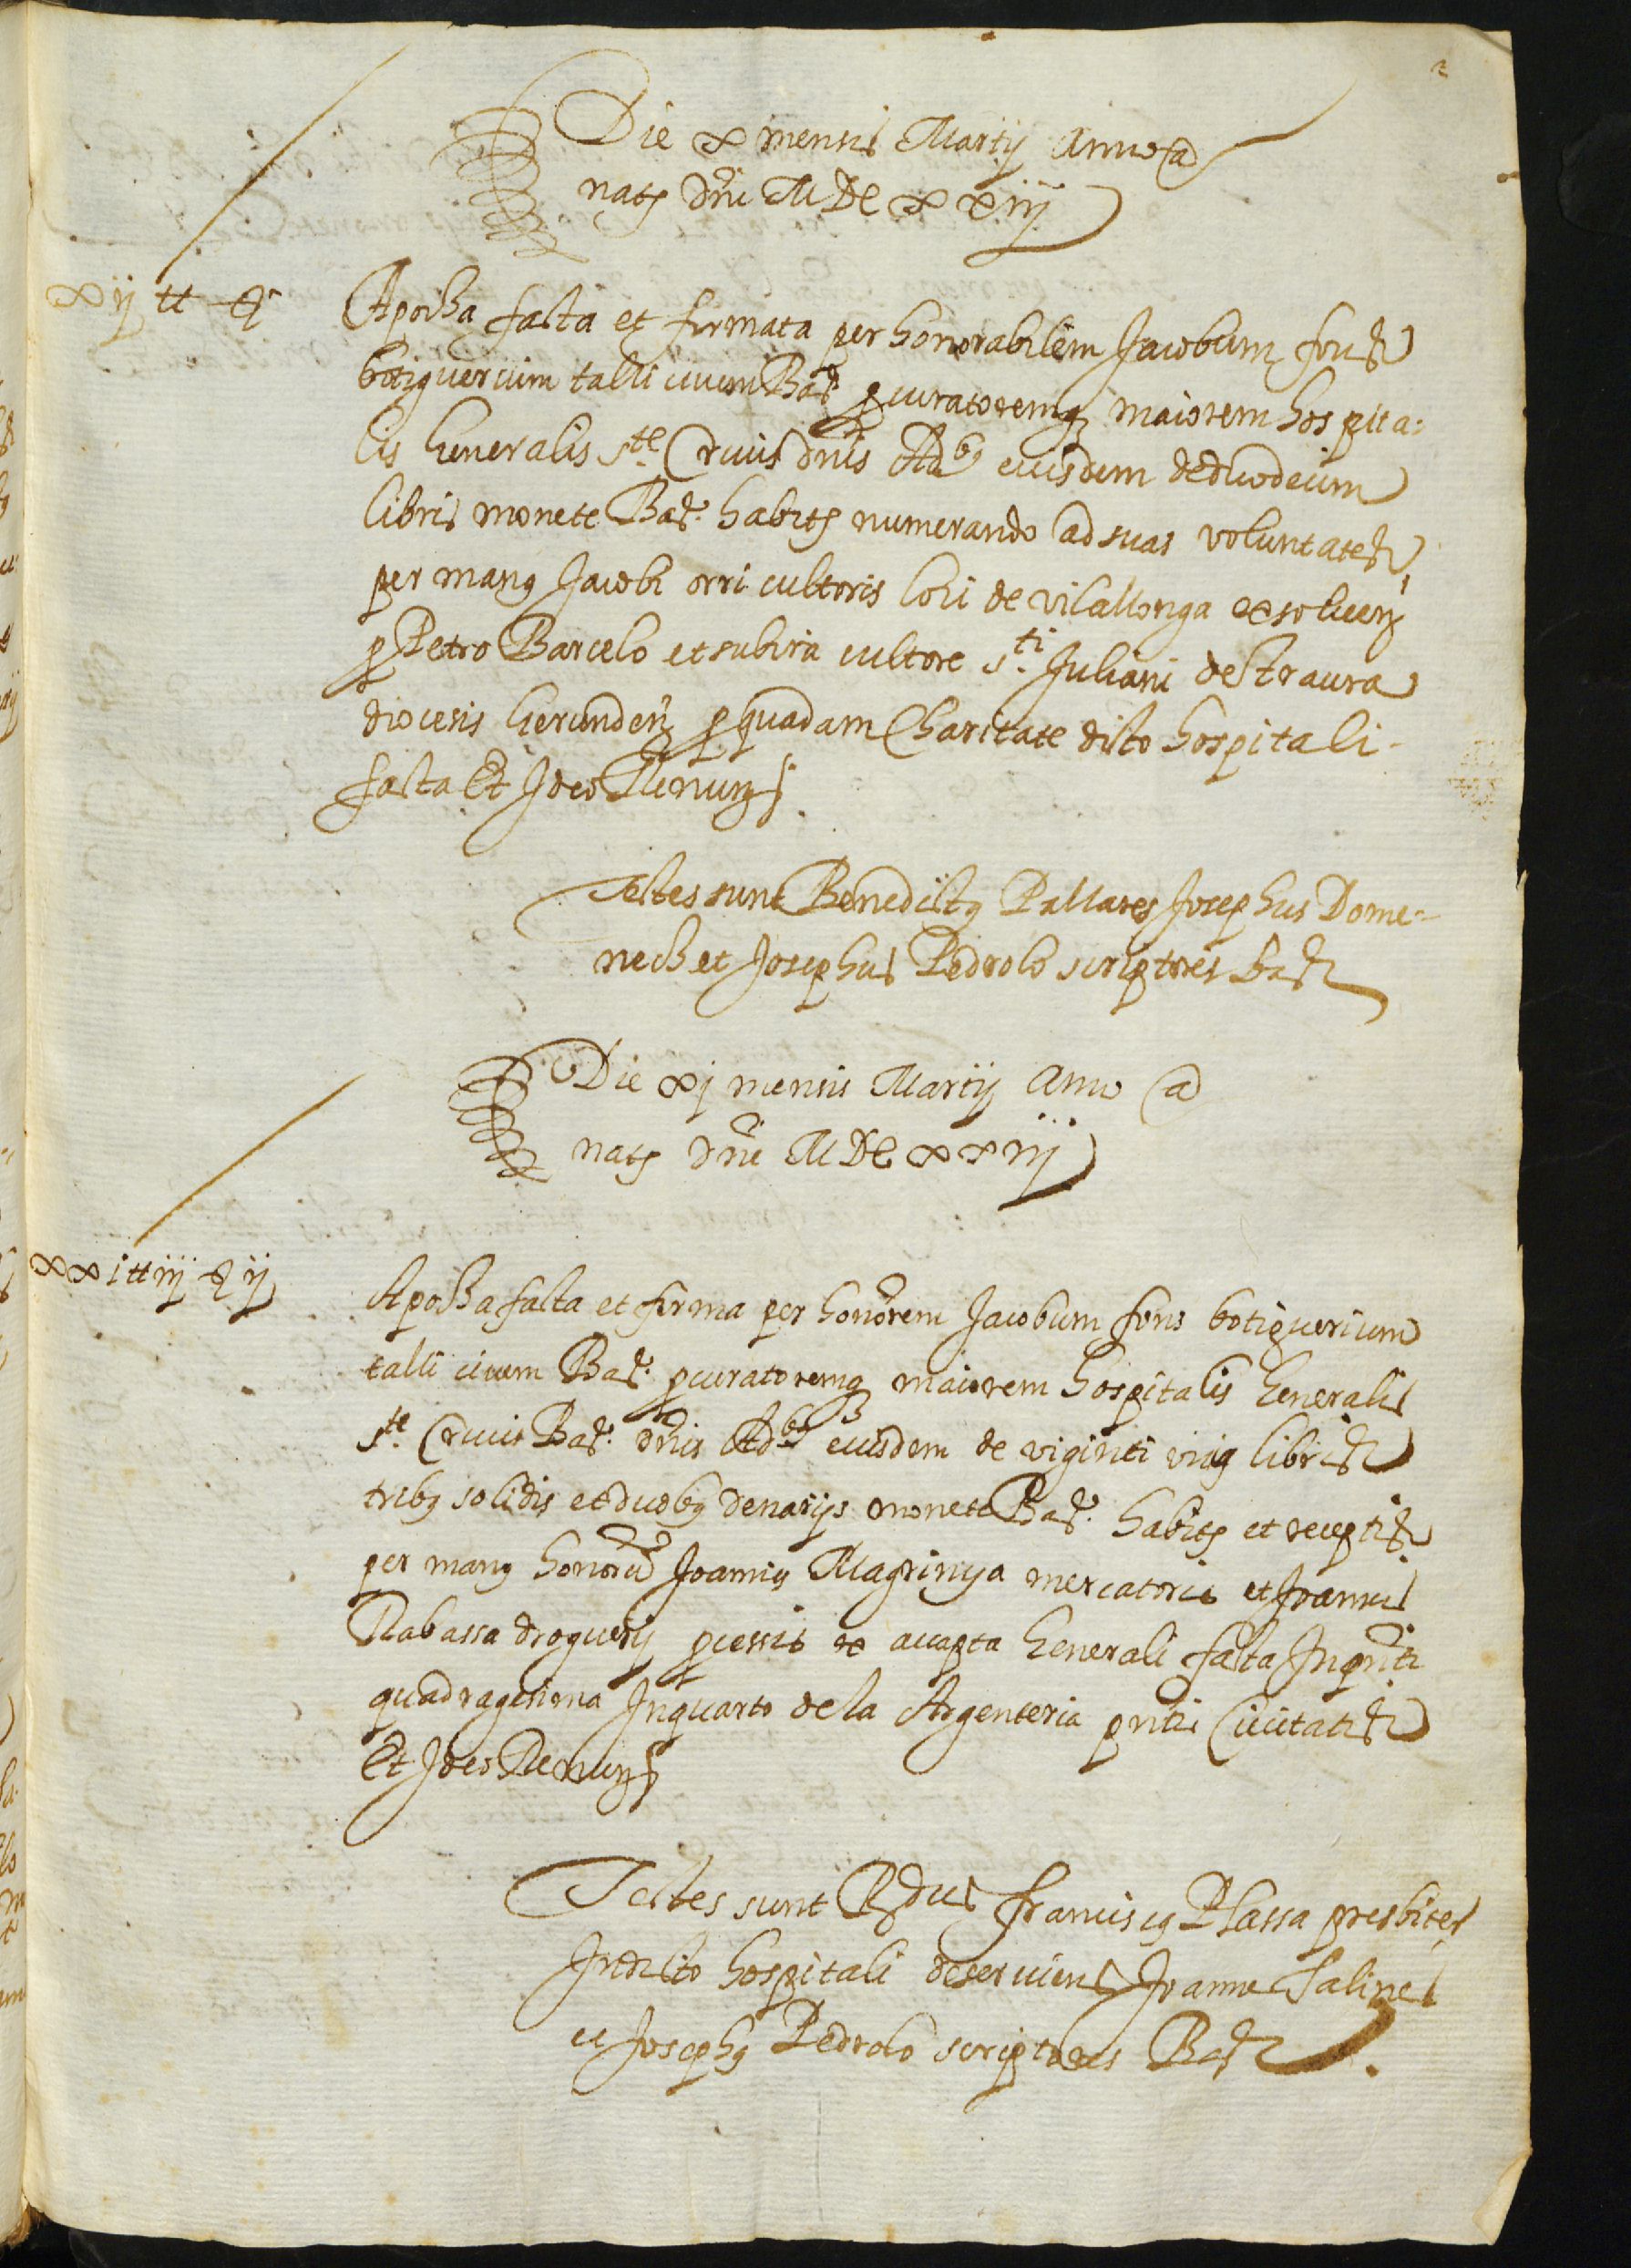 2
Die x mensis Martij Anno a
natẽ dñi MDCxxiij
xij ₶ β
Apocha facta et firmata per honorabilem Jacobum fons
botiguerium talli civem Barñ procuratoremq maiorem hospita-
lis Generalis Ste Crucis dñis Adbꝰ eiusdem de duodecim
libris monete Barñ. habitẽ numerando ad suas voluntates
per manꝰ Jacobi orri cultoris loci de vilallonga exsolveñ
p Petro Barcelo et subira cultore Sti Juliani de
diocesis Gerunden̄ p quadam Charitate dicto hospitali
facta Et Ideo Renunẽ
Testes sunt Benedictꝰ Pallares Josephus Dome-
nech et Josephus Pedrolo scriptores Barñ
Die xj mensis Martij Anno a
natẽ dñi MDCxxiij
xxi ₶ iij β ij
Apocha facta et firma per honorem Jacobum fons botiguerium
talli civem Barñ. procuratoremq maiorem hospitalis Generalis
Ste Crucis Barñ. dñis Adbꝰ eiusdem de viginti unꝰ libris
tribꝰ solidis et duobꝰ denarijs monete Barñ. habitẽ et receptis
per manꝰ honorũ Joannis Magrinya mercatoris et Joannis
Rabassa droguerij pcessis ex accapta Generali facta In pñti
quadragesima In quarto de la Argenteria pñtis Civitatis
Et Ideo Renunẽ
Testes sunt Rdus franciscꝰ Plassa presbiter
In dicto hospitali deserviens Joanne Salines
et Josephꝰ Pedrolo scriptores Barñ